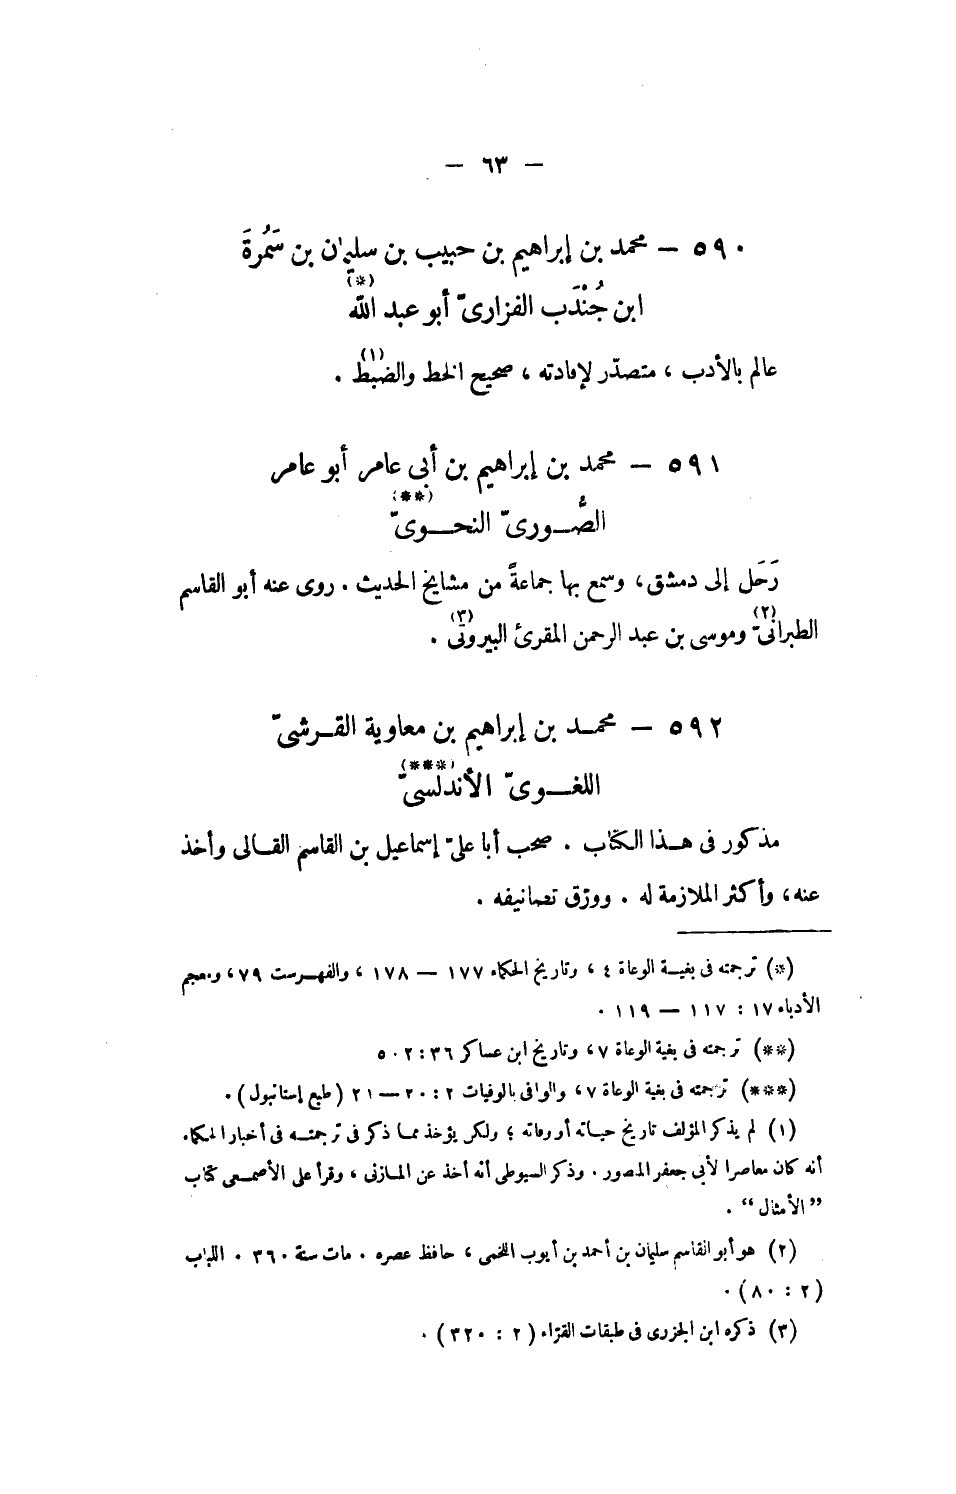 — ٦٣ —
٥٩٠ — محمد بن إبراهيم بن حبيب بن سليمان بن سَمُرةَ
ابن جُنْدَب الفزارىّ أبو عبد الله (*)
عالم بالأدب ، متصدّر لإفادته ، صحيح الخط والضبط (١) .
٥٩١ — محمد بن إبراهيم بن أبى عامر أبو عامر
الصُّورىّ النحوىّ (**)
رَحَل إلى دمشق، وسمع بها جماعةً من مشايخ الحديث . روى عنه أبو القاسم
الطبرانىّ (٢) وموسى بن عبد الرحمن المقرئ البيروتى (٣) .
٥٩٢ — محمد بن إبراهيم بن معاوية القرشىّ
اللغوىّ الأندلسىّ (***)
مذكور فى هذا الكتاب . صحب أبا علىّ إسماعيل بن القاسم القالى وأخذ
عنه، وأكثر الملازمة له . وورّق تصانيفه .
(*) ترجمته فى بغية الوعاة ٤ ، وتاريخ الحكماء ١٧٧ — ١٧٨ ، والفهرست ٧٩، ومعجم
الأدباء ١٧ : ١١٧ — ١١٩ .
(**) ترجمته فى بغية الوعاة ٧، وتاريخ ابن عساكر ٣٦ : ٥٠٢
(***) ترجمته فى بغية الوعاة ٧، والوافى بالوفيات ٢ : ٢٠ — ٢١ (طبع إستانبول) .
(١) لم يذكر المؤلف تاريخ حياته أو وفاته ؛ ولكن يؤخذ مما ذكر فى ترجمته فى أخبار الحكماء
أنه كان معاصرا لأبى جعفر المنصور . وذكر السيوطى أنه أخذ عن المازنى ، وقرأ على الأصمعى كتاب
”الأمثال“ .
(٢) هو أبو القاسم سليمان بن أحمد بن أيوب اللخمى ، حافظ عصره . مات سنة ٣٦٠ . اللباب
(٢ : ٨٠) .
(٣) ذكره ابن الجزرى فى طبقات القرّاء (٢ : ٣٢٠) .